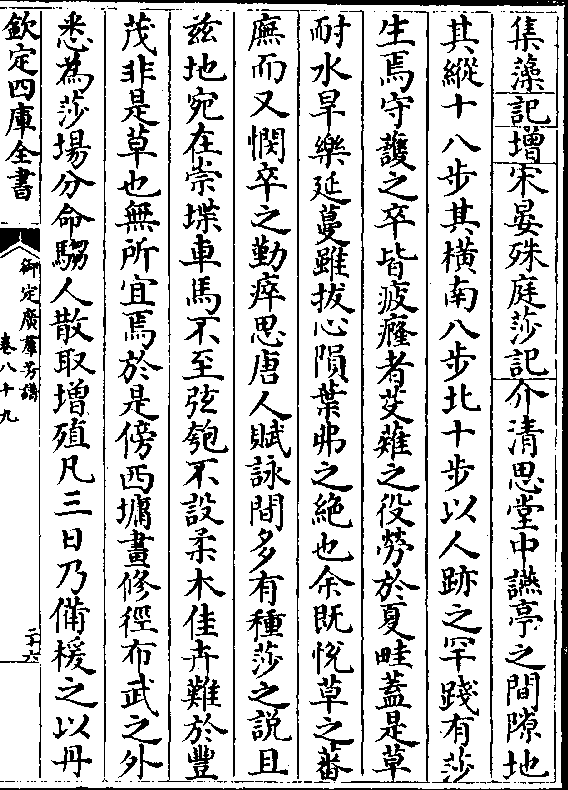 集藻記增宋晏殊庭莎記介清思堂中讌亭之間隙地
其縱十八步其橫南八步北十步以人跡之罕踐有莎
生焉守護之卒皆疲癃者芟薙之役勞於夏畦蓋是草
耐水旱樂延蔓雖拔心隕葉弗之絶也余既悅草之蕃
廡而又憫卒之勤瘁思唐人賦詠間多有種莎之説且
兹地宛在崇堞車馬不至弦匏不設柔木佳卉難於豐
茂非是草也無所宜焉於是傍西墉畫修徑布武之外
悉為莎場分命騶人散取增殖凡三日乃備楥之以丹
欽定四庫全書
御定廣羣芳譜
卷八十九
二十六